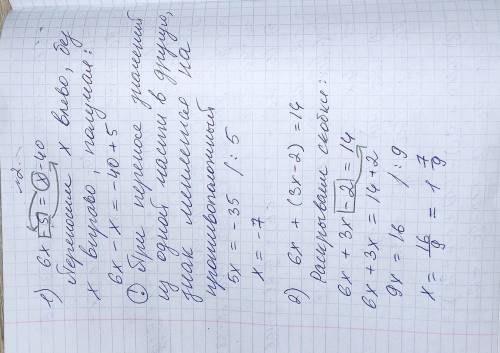 -2-
1) 6x -5 = x - 40
Переносим x влево, без
x вправо, получая:
6x - x = -40 + 5
! При переносе значений
из одной части в другую,
знак меняется на
противоположный
5x = -35 /: 5
x = -7
2) 6x + (3x - 2) = 14
Раскрываем скобки:
6x + 3x -2 = 14
6x + 3x = 14 + 2
9x = 16 /: 9
x = 16/9 = 1 7/9